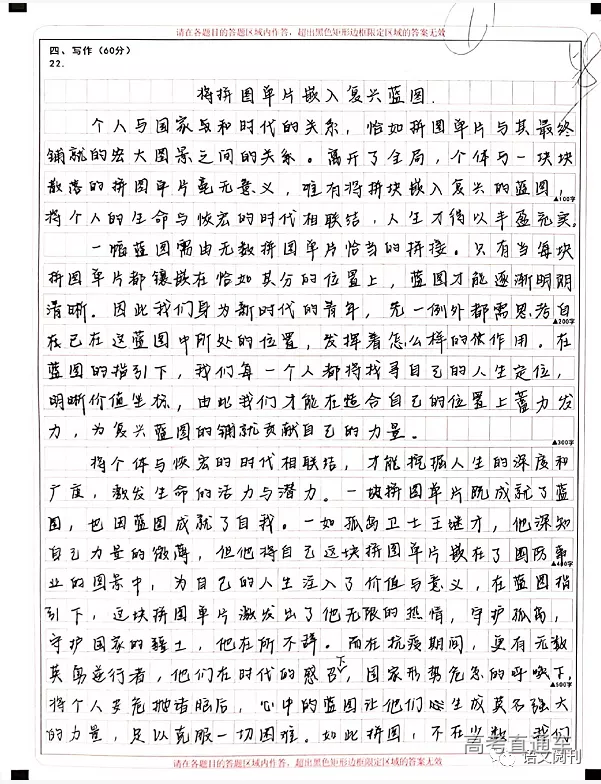 请在各题目的答题区域内作答，超出黑色矩形边框限定区域的答案无效
四、写作（60分）
22.
将拼图单片嵌入复兴蓝图.
个人与国家与和时代的关系，恰如拼图单片与其最终
铺就的宏大图景之间的关系。离开了全局，个体与一块块
散落的拼图单片毫无意义，唯有将拼块嵌入复兴的蓝图，
▲100字
将个人的生命与恢宏的时代相联结，人生才得以丰盈充实。
一幅蓝图需由无数拼图单片恰当的拼接。只有当每块
拼图单片都镶嵌在恰如其分的位置上，蓝图才能逐渐明朗
清晰。因此我们身为新时代的青年，无一例外都需思考自
▲200字
己在这蓝图中所处的位置，发挥着怎么样的作用。在
蓝图的指引下，我们每一个人都将找寻自己的人生定位，
明晰价值坐标，由此我们才能在适合自己的位置上蓄力发
力，为复兴蓝图的铺就贡献自己的力量。
▲300字
将个体与恢宏的时代相联结，才能挖掘人生的深度和
广度，激发生命的活力与潜力。一块拼图单片既成就了蓝
图，也因蓝图成就了自我。一如孤岛卫士王继才，他深知
自己力量的微薄，但他将自己这块拼图单片嵌在了国防事
▲400字
业的图景中，为自己的人生注入了价值与意义，在蓝图指
引下，这块拼图单片激发出了他无限的热情，守护孤岛，
守护国家的疆土，他在所不辞。而在抗疫期间，更有无数
英勇逆行者，他们在时代的感召下，国家形势危急的呼唤下，
▲500字
将个人安危抛诸脑后，心中的蓝图让他们心生成莫名强大
的力量，足以克服一切困难。如此拼图，不在少数，我们
请在各题目的答题区域内作答，超出黑色矩形边框限定区域的答案无效
高考直通车
语文周刊